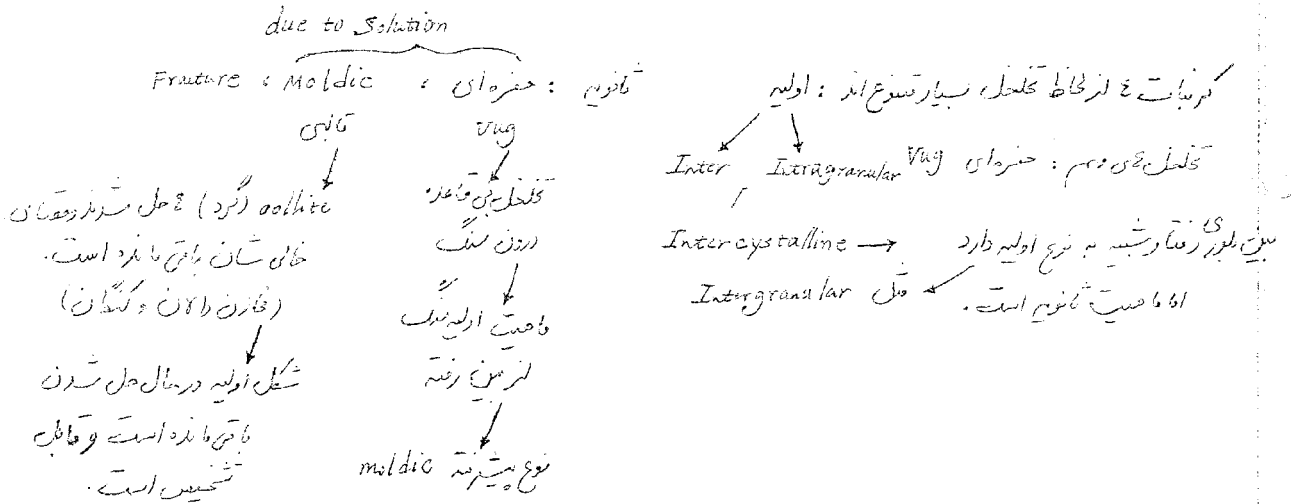 کربنات ها از لحاظ تخلخل بسیار متنوع اند : اولیه
Inter Intragranular
تخلخل های مهم : حفره ای Vug
Intercystalline → بین بلوری رفتار شبیه به نوع اولیه دارد
اما ماهیت ثانویه است.
مثل Intergranular
due to Solution
ثانویه : حفره ای ، Moldic ، Fracture
Vug
قالبی
تخلخل بی قاعده
درون سنگ
ماهیت اولیه سنگ
از بین رفته
نوع پیشرفته moldic
oollite (گرد) ها حل شدند و فضای
خالی شان باقی مانده است.
(مخازن دالان و کنگان)
شکل اولیه در حال حل شدن
باقی مانده است و قابل
تشخیص است.